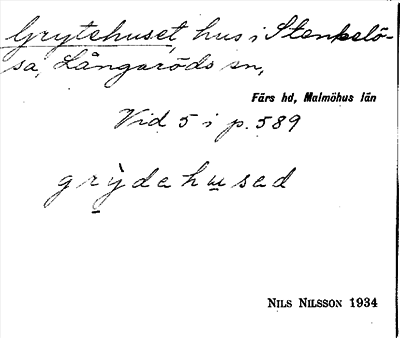 Grytehuset, hus i Stenkelö-
sa, Långaröds sn,
Färs hd, Malmöhus län
Vid 5 i p. 589
gr̲ỳdahu̲sad
NILS NILSSON 1934